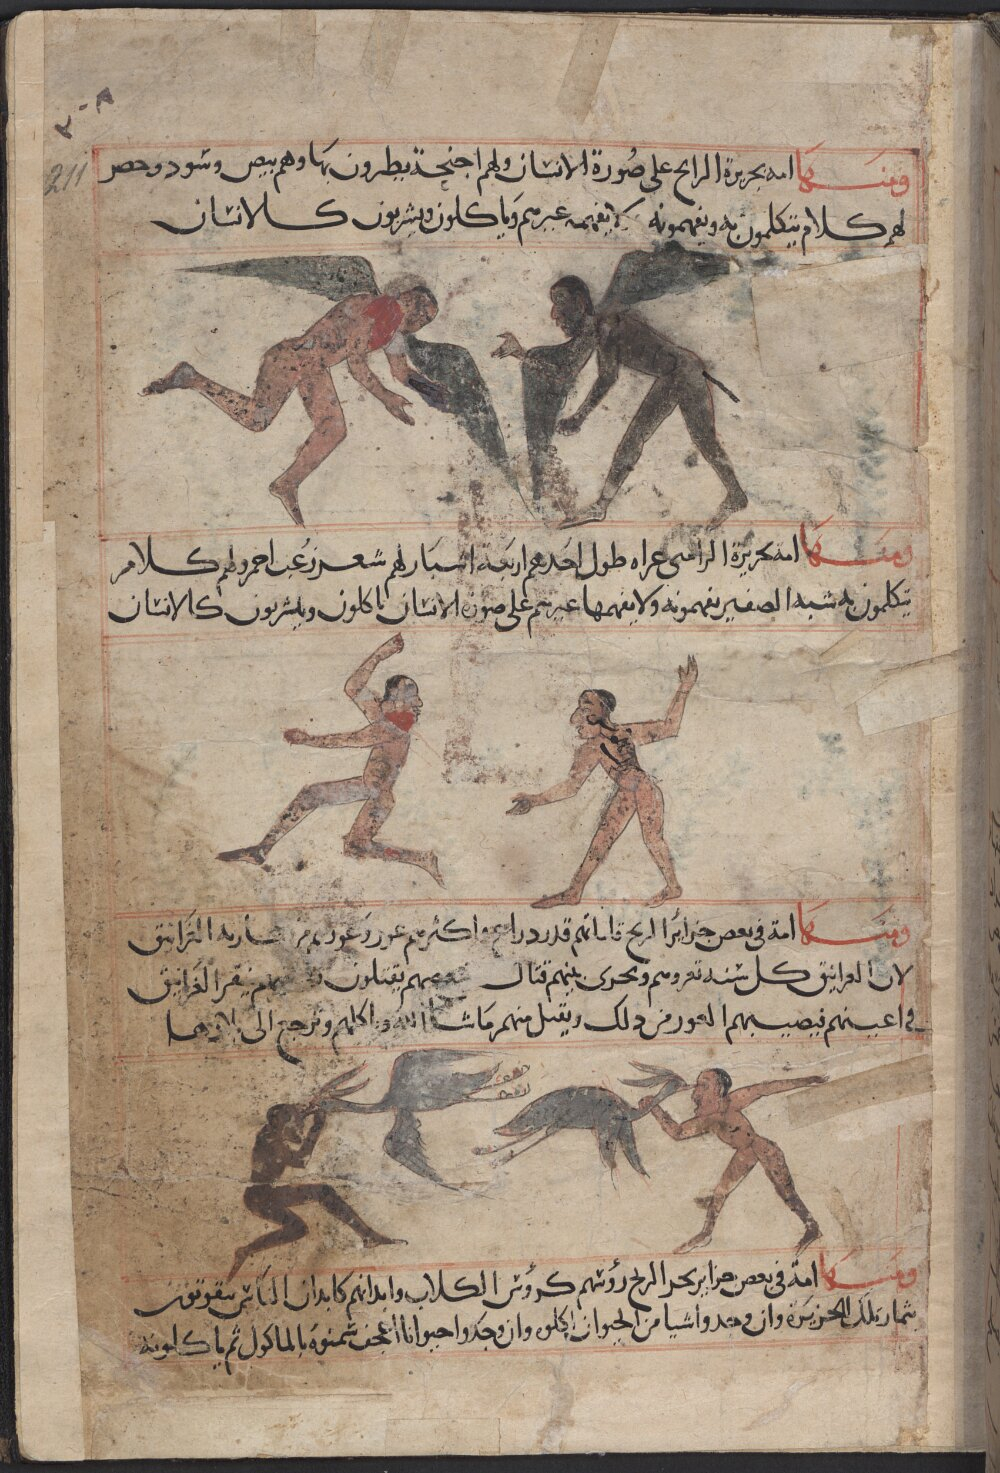 ٢٠٨
211
ومنها امة بجزيرة الرانج على صورة الانسان ولهم اجنحة يطيرون بها وهم بيض وسود وخضر
لهم كلام يتكلمون به ويفهمونه لا يفهمه غيرهم وياكلون ويشربون كالانسان
ومنها امة بجزيرة الرامنى عراه طول احدهم اربعة اشبار لهم شعر زغب احمر ولهم كلام
يتكلمون به شبه الصفير يفهمونه ولا يفهمها غيرهم على صورة الانسان ياكلون ويشربون كالانسان
ومنها امة في بعض جزاير الزنج قاماتهم قدر ذراع واكثرهم عور وعورهم من محاربة الغرانيق
لان الغرانيق كل سنه تغزوهم ويجرى بينهم قتال فبعضهم يقتلون وبعضهم ينقر الغرانيق
في اعينهم فيصيبهم العور من ذلك ويقتل منهم ما شا الله وياكلهم وترجع الى بلادها
ومنها امة في بعض جزاير بحر الزنج رؤسهم كرؤس الكلاب وابدانهم كابدان الناس يتقوتون
بثمار تلك الجزيرة وان وجدوا شيا من الحيوان اكلوه وان وجدوا حيوانا اعجف سمنوه بالماكول ثم ياكلونه